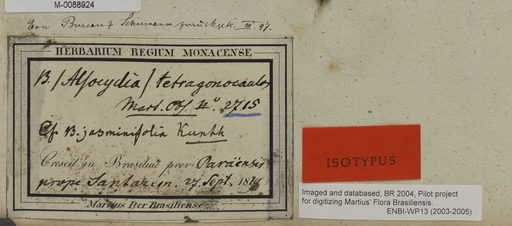 M-0088924
Von Bureau & Schumann zurück III. 97.
HERBARIUM REGIUM MONACENSE
B. / Alsocydia / tetragonocaulos
Mart. Obs. n° 2715
Cf B. jasminifolia Kunth
Crescit in Brasiliae prov. Paraensis
prope Santarem. 27 Sept. 1819
Martius Iter Brasiliense
ISOTYPUS
Imaged and databased, BR 2004, Pilot project
for digitizing Martius' Flora Brasiliensis.
ENBI-WP13 (2003-2005)